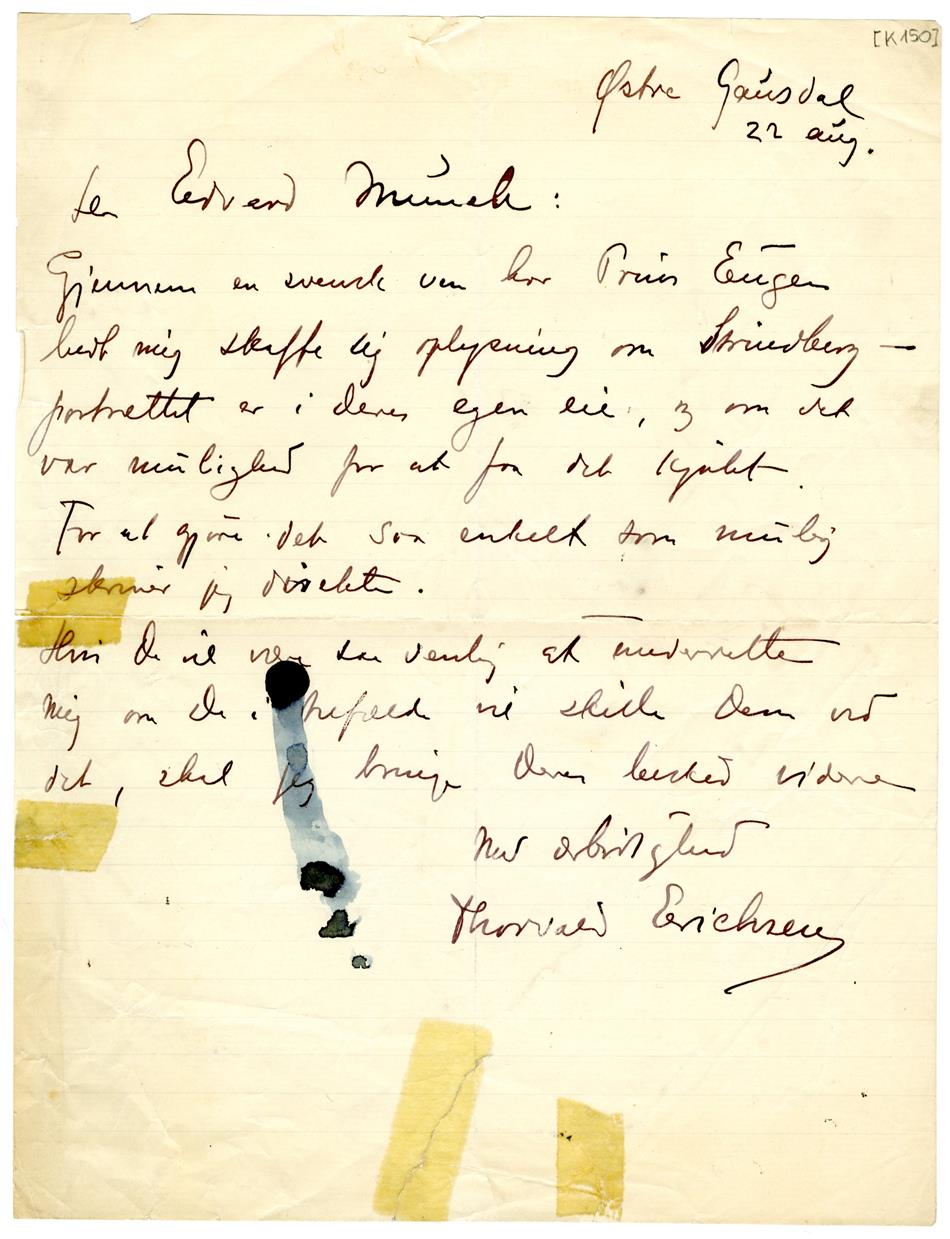 [K150]
Østre Gausdal
22 aug.
Edvard Munch:
Gjennem en svensk ven har Prins Eugen
bedt mig skaffe sig oplysning om Strindberg—
portrættet er i Deres egen eie, og om det
var mulighed for at faa det kjøbt.
For at gjøre det saa enkelt som mulig
skriver jeg direkte.
Hvis De vil være saa venlig at underrette
mig om De i tilfælde vil skille Dem ved
det, skal jeg bringe Deres besked videre
Med ærbødighed
Thorvald Erichsen